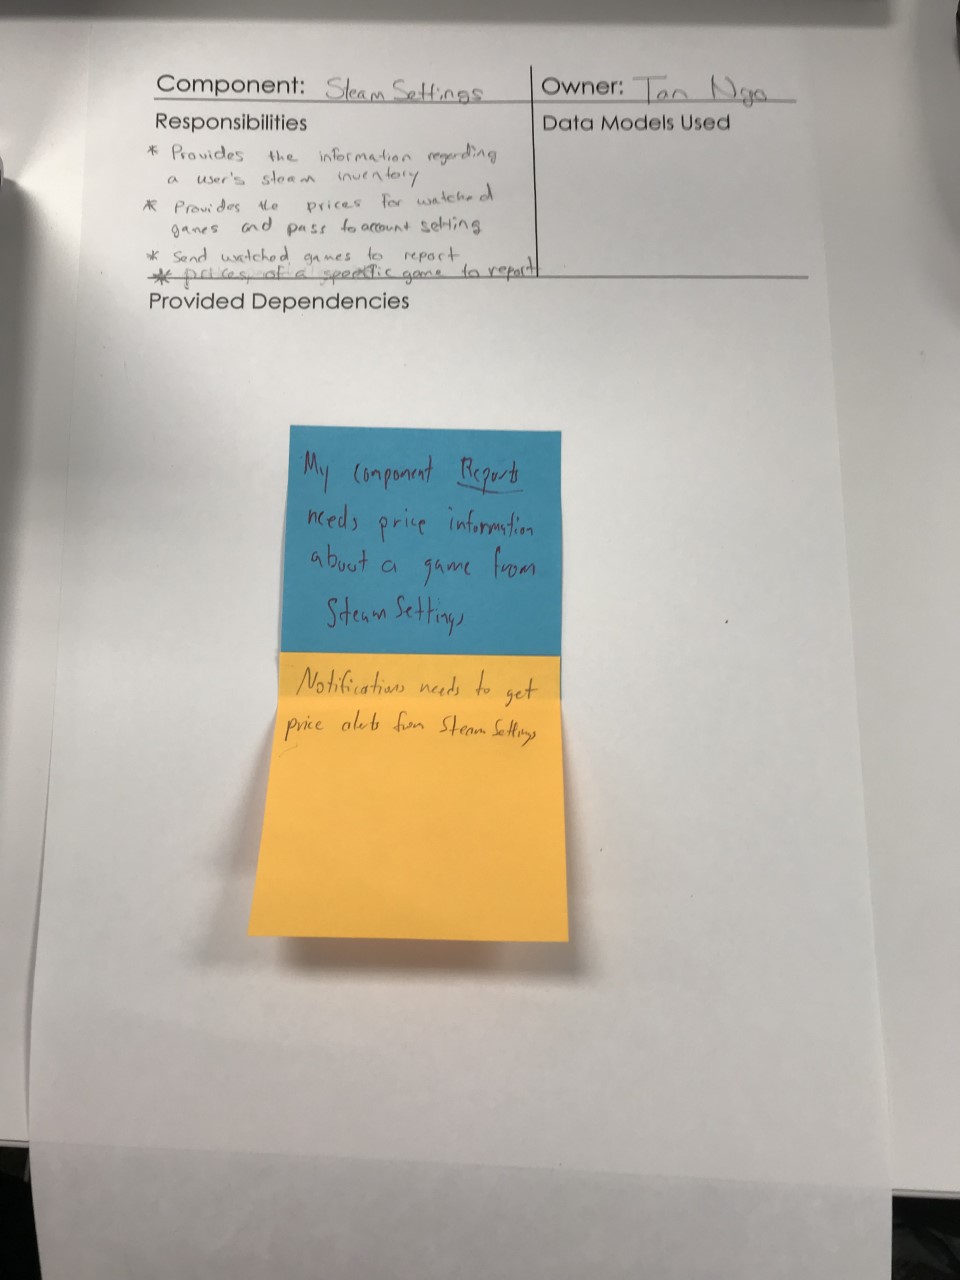 Component: Steam Settings
Owner: Tan Ngo
Responsibilities
Data Models Used
* Provides the information regarding
a user's steam inventory
* Provides the prices for watched
games and pass to account setting
* Send watched games to report
* prices of a specific game to report
Provided Dependencies
My component Reports
needs price information
about a game from
Steam Settings
Notifications needs to get
price alerts from Steam Settings